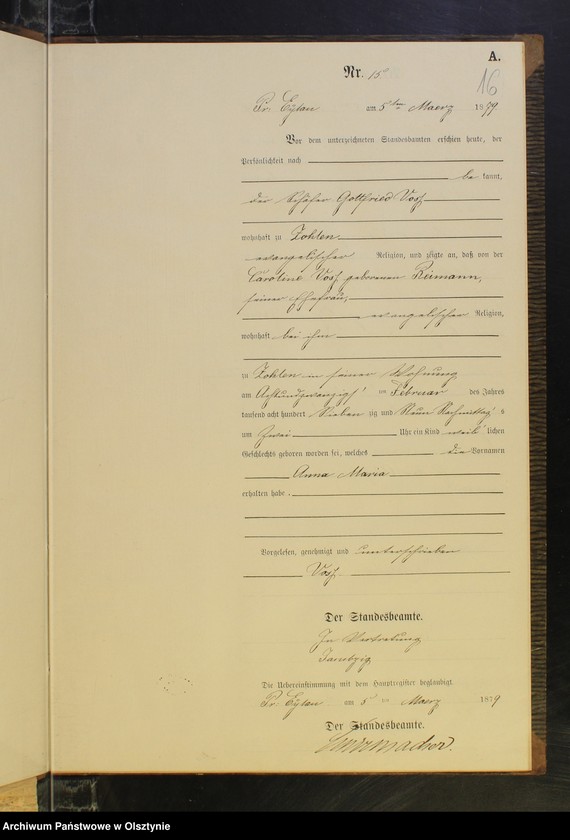 A.
Nr. 15
16
Pr. Eylau am 5ten Maerz 1879
Vor dem unterzeichneten Standesbeamten erschien heute, der
Persönlichkeit nach
be kannt,
der Schäfer Gottfried Voß
wohnhaft zu Zohlen
evangelischer Religion, und zeigte an, daß von der
Caroline Voß geborenen Reimann,
seiner Ehefrau,
evangelischer Religion,
wohnhaft bei ihm
zu Zohlen in seiner Wohnung
am Achtundzwanzigst en Februar des Jahres
tausend acht hundert Sieben zig und Neun Nachmittag s
um Zwei Uhr ein Kind weib lichen
Geschlechts geboren worden sei, welches die Vornamen
Anna Maria
erhalten habe.
Vorgelesen, genehmigt und unterschrieben
Voß.
Der Standesbeamte.
In Vertretung
Die Uebereinstimmung mit dem Hauptregister beglaubigt.
Pr. Eylau am 5 ten Maerz 1879
Der Standesbeamte.
Archiwum Państwowe w Olsztynie